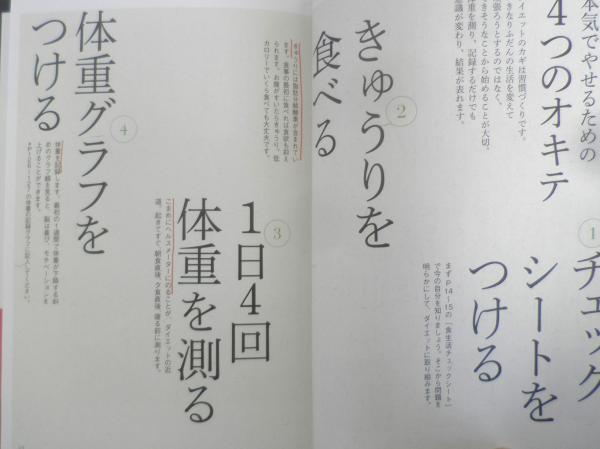 本気でやせるための
4つのオキテ
イエットのカギは習慣づくりです。
きなりふだんの生活を変えて
張ろうとするのではなく、
できそうなことから始めることが大切。
体重を測り、記録するだけでも
意識が変わり、結果が表れます。
1
チェック
シートを
つける
まずP14–15の「食生活チェックシート」
で今の自分を知りましょう。そこから問題を
明らかにして、ダイエットに取り組みます。
2
きゅうりを
食べる
きゅうりには脂肪分解酵素が含まれてい
ます。食事の最初に食べれば食欲も抑え
られます。お腹がすいたらきゅうり。低
カロリーでいくら食べても大丈夫です。
3
1日4回
体重を測る
こまめにヘルスメーターにのることが、ダイエットの近
道。起きてすぐ、朝食直後、夕食直後、寝る前に測ります。
4
体重グラフを
つける
体重を記録します。最初の1週間で体重が下降する斜
めのグラフ線を見ると、脳は喜び、モチベーションを
上げることができます。
の体重の記録グラフに記入してください。